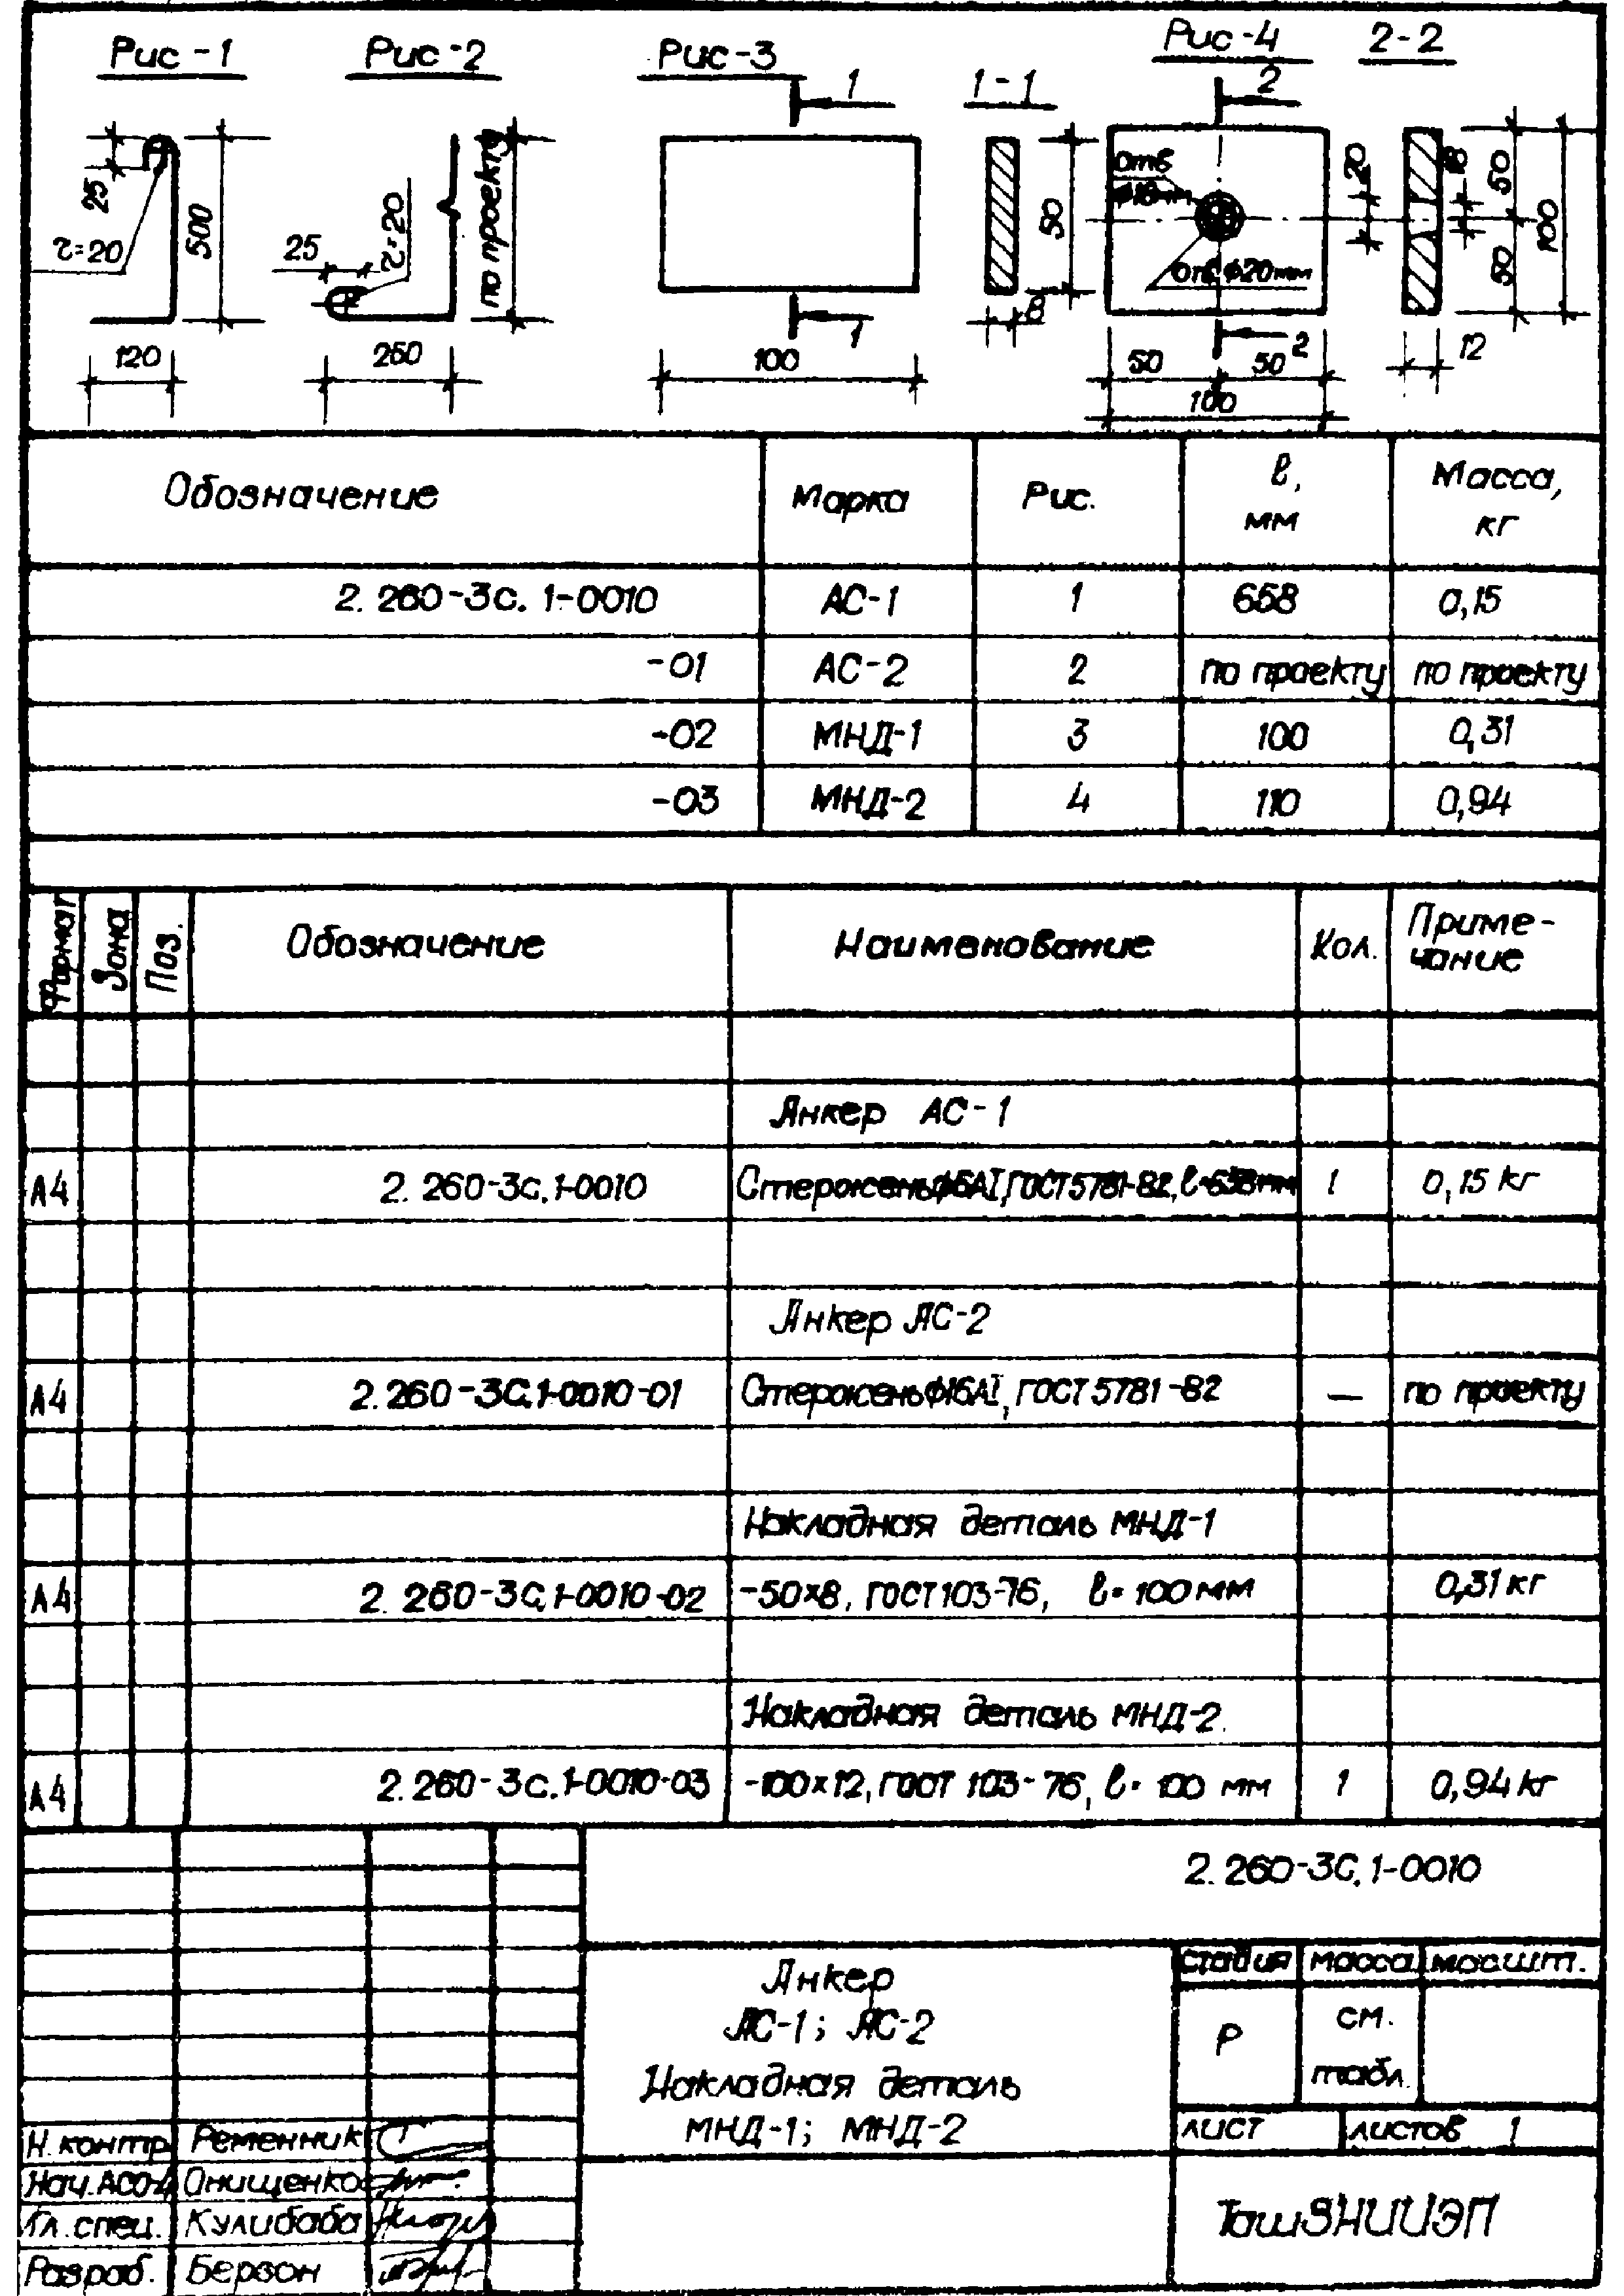 Рис-1 Рис-2 Рис-3 1-1 Рис-4 2-2
1 2
25 500 τ=20 120
25 τ=20 по проекту 260
1 100
50 8
отв ф18мм
отв ф20мм
2
50 50
100
20 18 50 50 100 12
Обозначение Марка Рис. ℓ, мм Масса, кг
2. 260-3с. 1-0010 АС-1 1 658 0,15
-01 АС-2 2 по проекту по проекту
-02 МНД-1 3 100 0,31
-03 МНД-2 4 110 0,94
Формат Зона Поз. Обозначение Наименование Кол. Примечание
Анкер АС-1
А4 2. 260-3с.1-0010 Стержень ф6АI, ГОСТ 5781-82, ℓ=658мм 1 0,15 кг
Анкер АС-2
А4 2.260-3С.1-0010-01 Стержень ф16АI, ГОСТ 5781-82 — по проекту
Накладная деталь МНД-1
А4 2. 260-3С.1-0010-02 -50x8, ГОСТ 103-76, ℓ=100мм 0,31 кг
Накладная деталь МНД-2.
А4 2.260-3с.1-0010-03 -100x12, ГОСТ 103-76, ℓ=100 мм 1 0,94 кг
2. 260-3С.1-0010
Анкер
АС-1; АС-2
Накладная деталь
МНД-1; МНД-2
стадия масса масшт.
Р см. табл.
лист листов 1
Н.контр. Ременник
Нач.АСО-4 Онищенко
Гл.спец. Кулибаба
Разраб. Берзон
ТашЗНИИЭП